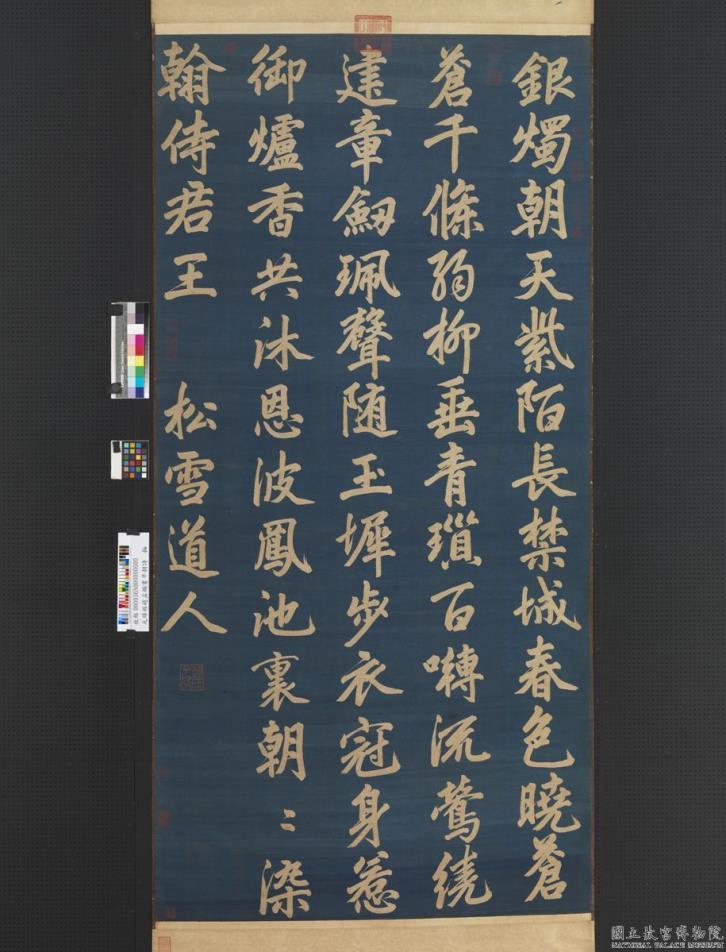 銀燭朝天紫陌長禁城春色曉蒼
蒼千條弱柳垂青瑣百囀流鶯繞
建章劒珮聲随玉墀步衣冠身惹
御爐香共沐恩波鳳池裏朝〻染
翰侍君王 松雪道人
國立故宮博物院
NATIONAL PALACE MUSEUM